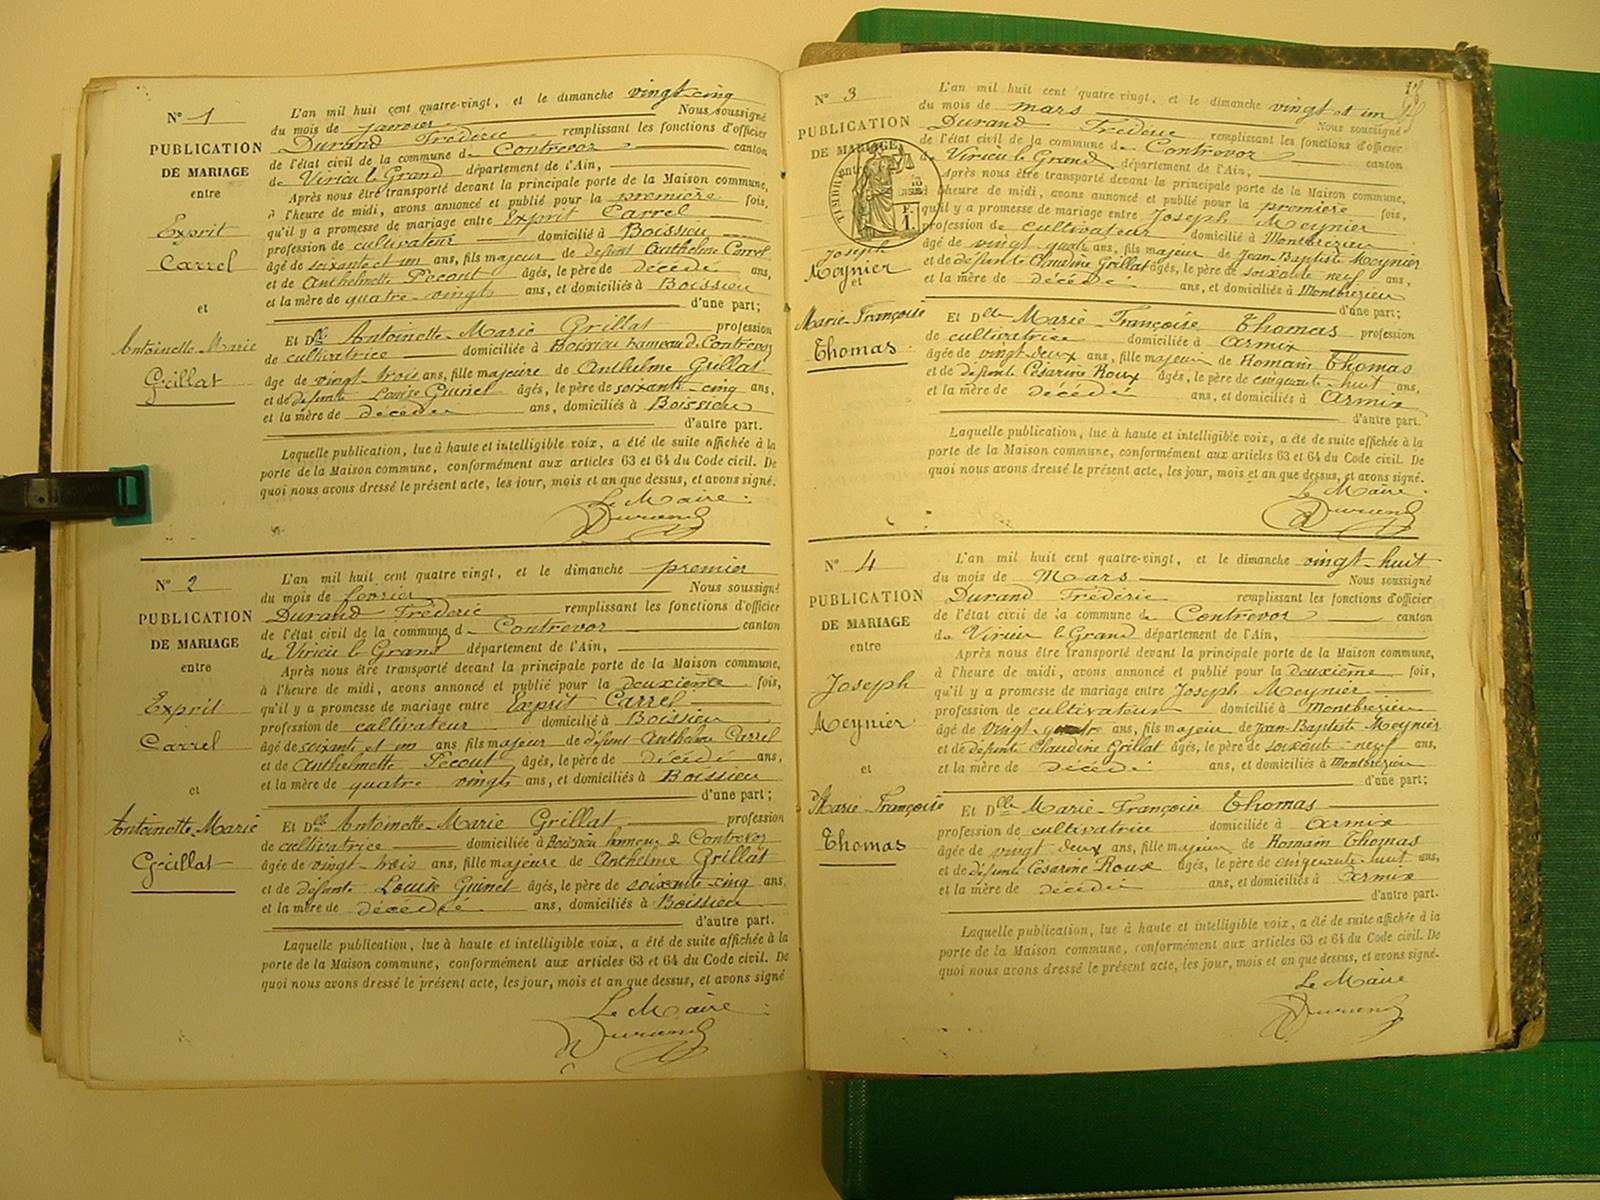 N° 1
PUBLICATION
DE MARIAGE
entre
Exprit
Carrel
et
Antoinette Marie
Grillat
L'an mil huit cent quatre-vingt, et le dimanche vingt cinq
du mois de janvier Nous soussigné
Durand Fréderic remplissant les fonctions d'officier
de l'état civil de la commune de Contrevoz canton
de Virieu le Grand département de l'Ain,
Après nous être transporté devant la principale porte de la Maison commune,
à l'heure de midi, avons annoncé et publié pour la première fois,
qu'il y a promesse de mariage entre Exprit Carrel
profession de cultivateur domicilié à Boissieu
âgé de soixante et un ans, fils majeur de défunt Anthelme Carrel
et de Anthelmette Pécout âgés, le père de décédé ans,
et la mère de quatre-vingts ans, et domiciliés à Boissieu
d'une part;
Et Dlle Antoinette-Marie Grillat profession
de cultivatrice domiciliée à Boissieu hameau de Contrevoz
âgé de vingt-trois ans, fille majeure de Anthelme Grillat
et de défunte Louise Guinet âgés, le père de soixante-cinq ans,
et la mère de décédée ans, domiciliés à Boissieu
d'autre part.
Laquelle publication, lue à haute et intelligible voix, a été de suite affichée à la
porte de la Maison commune, conformément aux articles 63 et 64 du Code civil. De
quoi nous avons dressé le présent acte, les jour, mois et an que dessus, et avons signé.
Le Maire
Durand
N° 2
PUBLICATION
DE MARIAGE
entre
Exprit
Carrel
et
Antoinette Marie
Grillat
L'an mil huit cent quatre-vingt, et le dimanche premier
du mois de fevrier Nous soussigné
Durand Fréderic remplissant les fonctions d'officier
de l'état civil de la commune de Contrevoz canton
de Virieu le Grand département de l'Ain,
Après nous être transporté devant la principale porte de la Maison commune,
à l'heure de midi, avons annoncé et publié pour la deuxième fois,
qu'il y a promesse de mariage entre Exprit Carrel
profession de cultivateur domicilié à Boissieu
âgé de soixante et un ans fils majeur de défunt Anthelme Carrel
et de Anthelmette Pécout âgés, le père de décédé ans,
et la mère de quatre vingts ans, et domiciliés à Boissieu
d'une part;
Et Dlle Antoinette-Marie Grillat profession
de cultivatrice domiciliée à Boissieu hameau de Contrevoz
âgée de vingt-trois ans, fille majeure de Anthelme Grillat
et de défunte Louise Guinet âgés, le père de soixante-cinq ans,
et la mère de décédée ans, domiciliés à Boissieu
d'autre part.
Laquelle publication, lue à haute et intelligible voix, a été de suite affichée à la
porte de la Maison commune, conformément aux articles 63 et 64 du Code civil. De
quoi nous avons dressé le présent acte, les jour, mois et an que dessus, et avons signé
Le Maire
Durand
N° 3
PUBLICATION
DE MARIAGE
entre
Joseph
Meynier
et
Marie-Françoise
Thomas
L'an mil huit cent quatre-vingt, et le dimanche vingt et un
du mois de mars Nous soussigné
Durand Fréderic remplissant les fonctions d'officier
de l'état civil de la commune de Contrevoz canton
de Virieu le Grand département de l'Ain,
Après nous être transporté devant la principale porte de la Maison commune,
à l'heure de midi, avons annoncé et publié pour la première fois,
qu'il y a promesse de mariage entre Joseph Meynier
profession de cultivateur domicilié à Montbrezieu
âgé de vingt quatre ans, fils majeur de Jean-Baptiste Meynier
et de défunte Claudine Grillat âgés, le père de soixante neuf ans,
et la mère de décédée ans, et domiciliés à Montbrezieu
d'une part;
Et Dlle Marie-Françoise Thomas profession
de cultivatrice domiciliée à Armix
âgée de vingt-deux ans, fille majeure de Romain Thomas
et de défunte Césarine Roux âgés, le père de cinquante-huit ans,
et la mère de décédé ans, et domiciliés à Armix
d'autre part.
Laquelle publication, lue à haute et intelligible voix, a été de suite affichée à la
porte de la Maison commune, conformément aux articles 63 et 64 du Code civil. De
quoi nous avons dressé le présent acte, les jour, mois et an que dessus, et avons signé.
Le Maire
Durand
N° 4
PUBLICATION
DE MARIAGE
entre
Joseph
Meynier
et
Marie-Françoise
Thomas
L'an mil huit cent quatre-vingt, et le dimanche vingt-huit
du mois de Mars Nous soussigné
Durand Fréderic remplissant les fonctions d'officier
de l'état civil de la commune de Contrevoz canton
de Virieu le Grand département de l'Ain,
Après nous être transporté devant la principale porte de la Maison commune,
à l'heure de midi, avons annoncé et publié pour la deuxième fois,
qu'il y a promesse de mariage entre Joseph Meynier
profession de cultivateur domicilié à Montbrezieu
âgé de vingt-quatre ans, fils majeur de Jean-Baptiste Meynier
et de défunte Claudine Grillat âgés, le père de soixante-neuf ans,
et la mère de décédé ans, et domiciliés à Montbrezieu
d'une part;
Et Dlle Marie-Françoise Thomas
profession de cultivatrice domiciliée à Armix
âgée de vingt deux ans, fille majeure de Romain Thomas
et de défunte Césarine Roux âgés, le père de cinquante huit ans,
et la mère de décédée ans, et domiciliés à Armix
d'autre part.
Laquelle publication, lue à haute et intelligible voix, a été de suite affichée à la
porte de la Maison commune, conformément aux articles 63 et 64 du Code civil. De
quoi nous avons dressé le présent acte, les jour, mois et an que dessus, et avons signé.
Le Maire
Durand